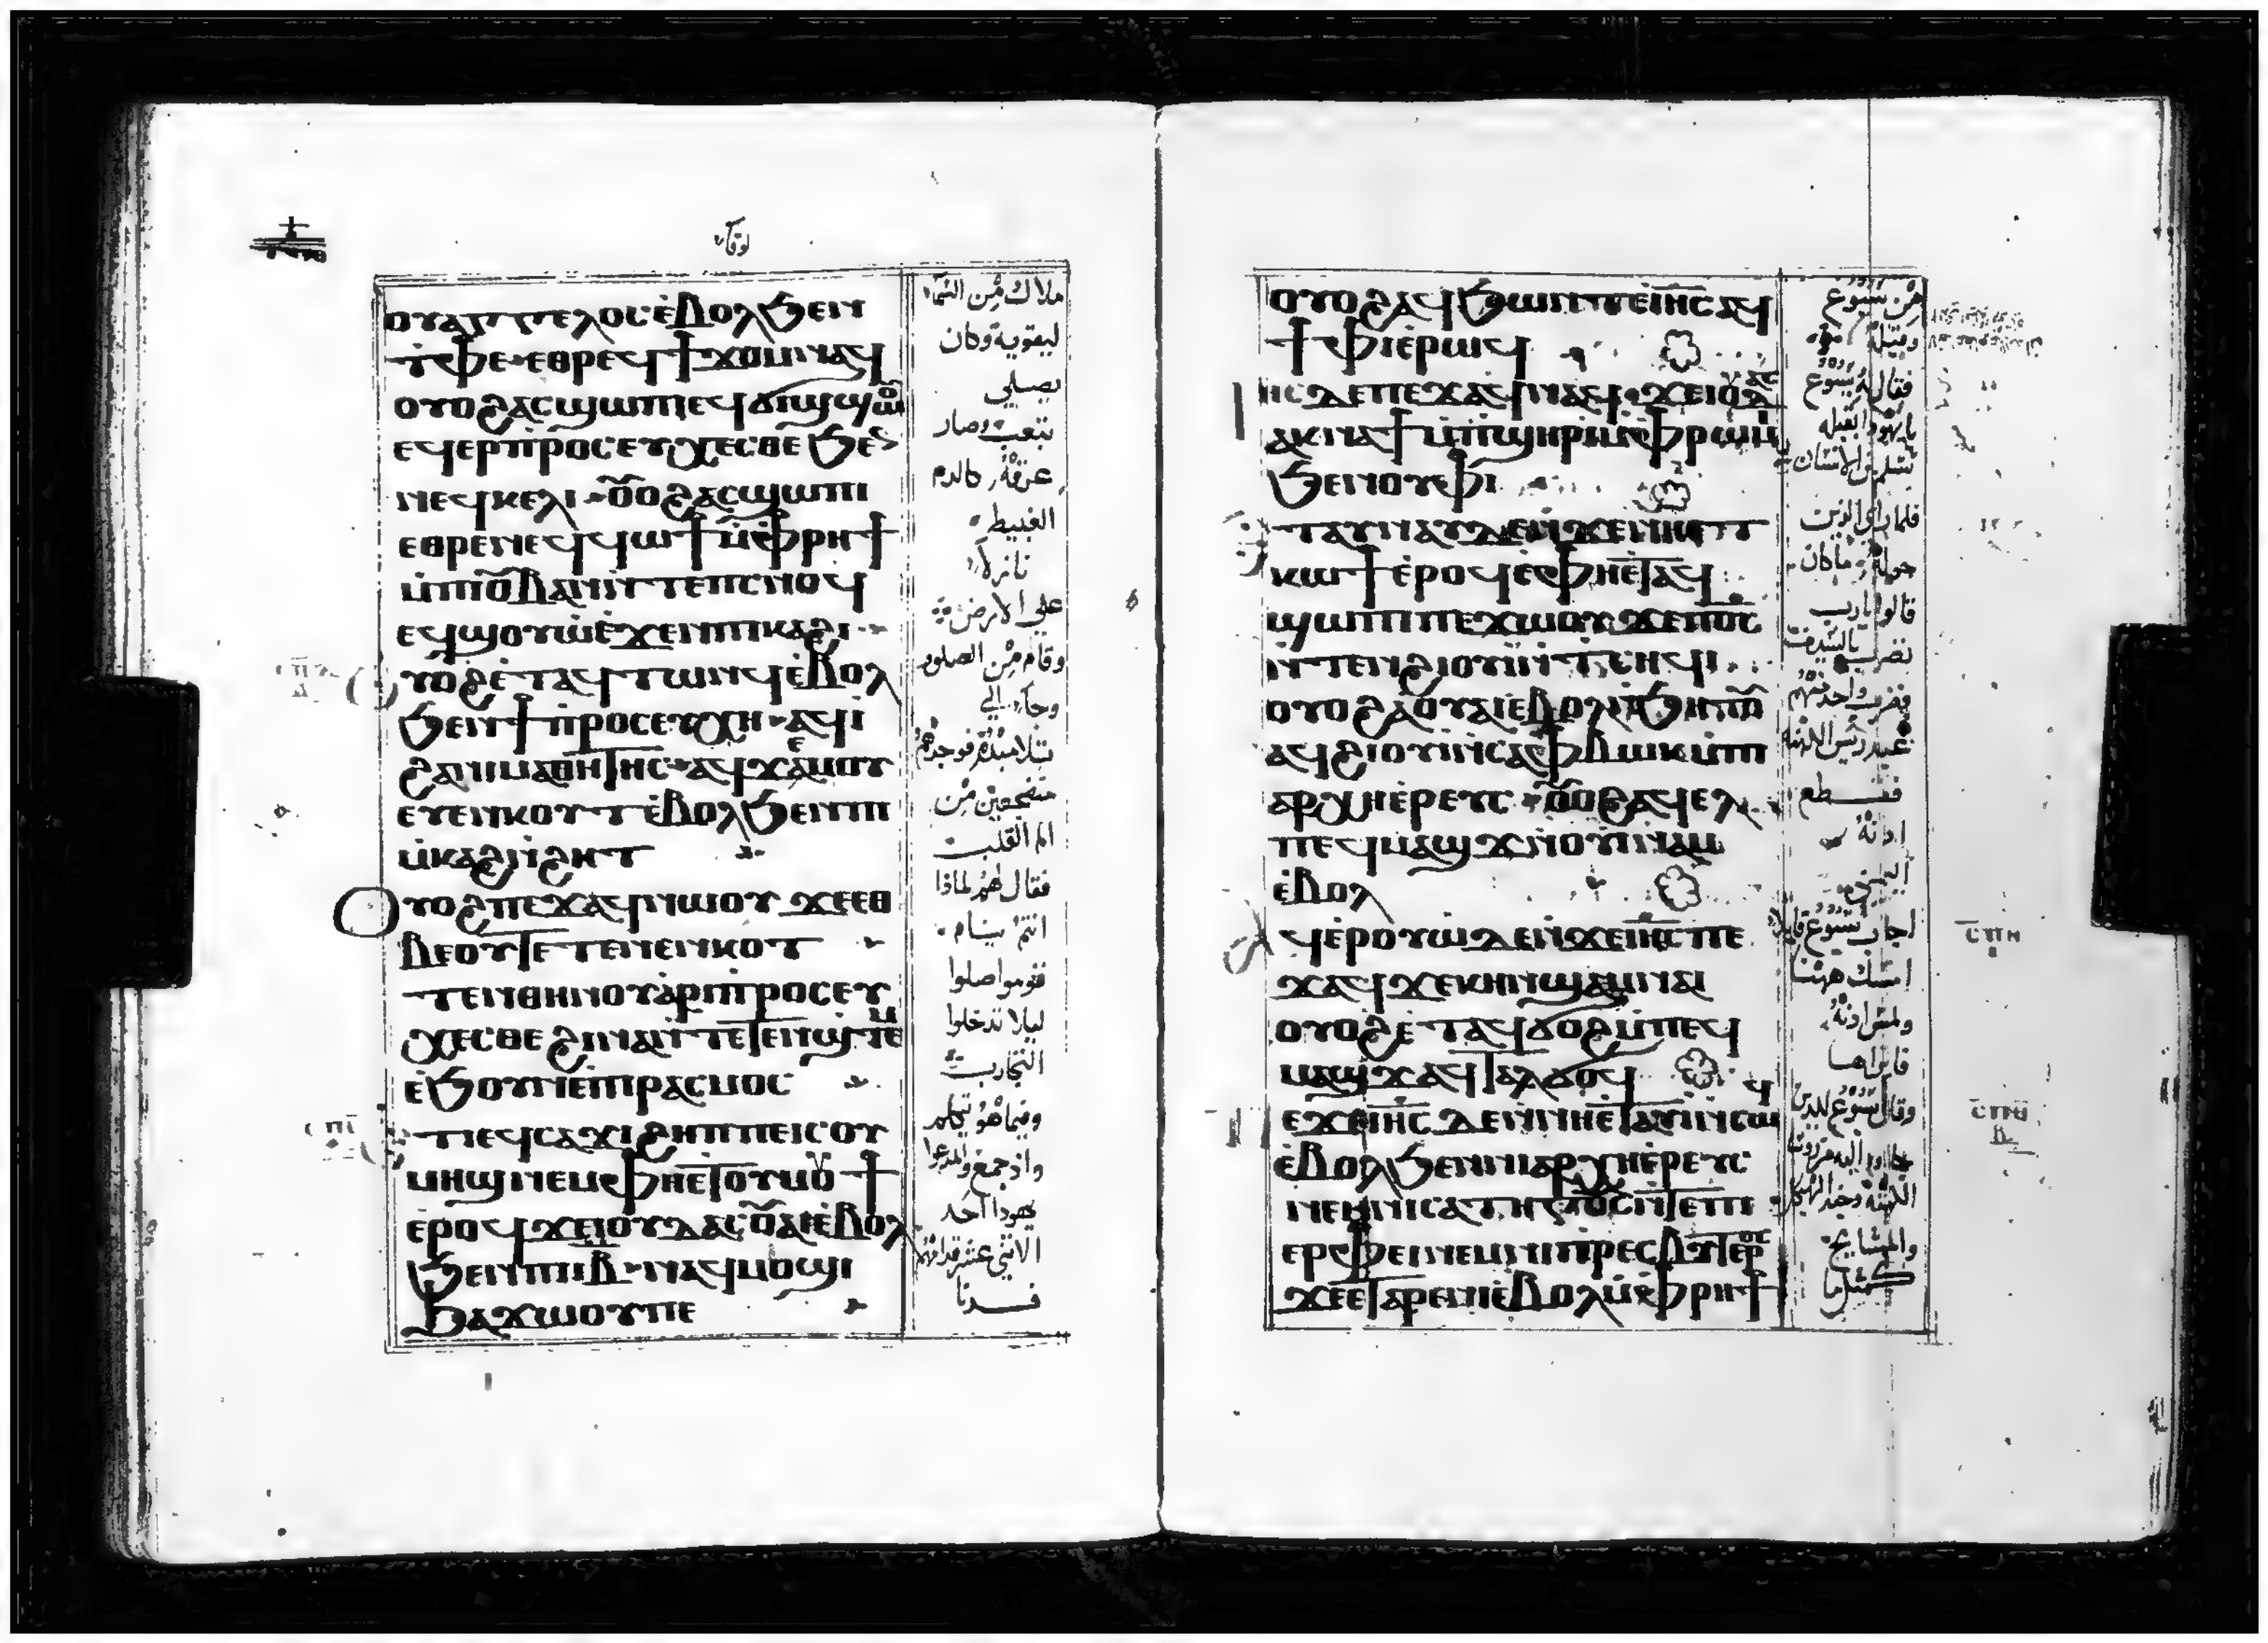 لوقا
ⲟⲩⲁⲅⲅⲉⲗⲟⲥ ⲉ̀ⲃⲟⲗϧⲉⲛ
ⲧ̀ⲫⲉ ⲉⲑⲣⲉϥϯϫⲟⲙⲛⲁϥ
ⲟⲩⲟϩⲁⲥϣⲱⲡⲓ ⲉϥϭⲓϣϣⲱⲟ
ⲉϥⲉⲣⲡ̀ⲣⲟⲥⲉⲩⲭⲉⲥⲑⲉ ϧⲉ
ⲛⲉϥⲕⲉⲗⲓ ⲟⲩⲟϩⲁⲥϣⲱⲡⲓ
ⲉⲑⲣⲉⲛⲉϥϥⲱϯ ⲙ̀ⲫⲣⲏϯ
ⲙ̀ⲡⲓⲟ̅ⲃⲁⲛ ⲛ̀ⲧⲉⲡⲥⲛⲟϥ
ⲉϥϣⲟⲩⲱ̀ ⲉ̀ϫⲉⲛⲡⲓⲕⲁϩⲓ
ⲩⲟϩ ⲉ̀ⲧⲁϥⲧⲱⲛϥ ⲉ̀ⲃⲟⲗ
ϧⲉⲛϯⲡ̀ⲣⲟⲥⲉⲩⲭⲏ ⲁϥⲓ̀
ϩⲁⲛⲓⲙⲁⲑⲏⲧⲏⲥ ⲁϥϫⲉⲙⲟⲩ
ⲉⲩⲉⲛⲕⲟⲧ ⲉ̀ⲃⲟⲗϧⲉⲛⲡⲓ
ⲙ̀ⲕⲁϩⲛ̀ϩⲏⲧ
ⲟⲩⲟϩ ⲡⲉϫⲁϥⲛⲱⲟⲩ ϫⲉⲉⲑ
ⲃⲉⲟⲩⲧⲉⲧⲉⲛⲉⲛⲕⲟⲧ
ⲧⲉⲛⲑⲏⲛⲟⲩ ⲁⲣⲓⲡ̀ⲣⲟⲥⲉⲩ
ⲭⲉⲥⲑⲉ ϩⲓⲛⲁ ⲛ̀ⲧⲉⲧⲉⲛϣⲧⲉⲙⲓ
ⲉ̀ϧⲟⲩⲛ ⲉ̀ⲡⲓⲣⲁⲥⲙⲟⲥ
ⲧⲓⲉϥⲥⲁϫⲓ ϩⲏⲡⲡⲉ ⲓⲥⲟⲩ
ⲙⲏϣ ⲛⲉⲙⲫⲏⲉⲧⲟⲩⲙⲟⲩϯ
ⲉⲣⲟϥ ϫⲉⲓⲟⲩⲇⲁⲥ ⲟⲩⲁⲓ ⲉ̀ⲃⲟⲗ
ϧⲉⲛⲡⲓⲓ̅ⲃ̅ ⲛⲁϥⲙⲟϣⲓ
ϧⲁϫⲱⲟⲩⲡⲉ
ملاك من السماء
ليقويه وكان
يصلي
بتعب وصار
عرقه كالدم
الغبيط
نازلا
على الارض
وقام من الصلوه
وجاء الي
تلاميذه فوجدهم
مضجعين من
الم القلب
فقال لهم لماذا
انتم نيام
قوموا صلوا
ليلا تدخلوا
التجارب
وفيما هو يتكلم
واذ جمع والمدعوا
يهودا احد
الاثني عشر قدامهم
ⲟⲩⲟϩ ⲁϥϧⲱⲛⲧ ⲉ̀ⲓⲏ̅ⲥ̅ ⲁϥ
ϯⲫⲓ ⲉ̀ⲣⲱϥ
ⲓⲏ̅ⲥ̅ ⲇⲉⲡⲉϫⲁϥⲛⲁϥ ϫⲉⲓⲟⲩⲇⲁⲥ
ⲁⲕⲛⲁϯ ⲙ̀ⲡ̀ϣⲏⲣⲓ ⲙ̀ⲫⲣⲱⲙⲓ
ϧⲉⲛⲟⲩⲫⲓ
ⲧⲁⲩⲛⲁⲩ ⲇⲉⲛ̀ϫⲉⲛⲏⲉⲧ
ⲕⲱϯ ⲉ̀ⲣⲟϥ ⲉ̀ⲫⲏⲉⲧⲁϥ
ϣⲱⲡⲓ ⲡⲉϫⲱⲟⲩ ϫⲉⲡⲟ̅ⲥ̅
ⲛ̀ⲧⲉⲛϩⲓⲟⲩⲓ̀ ⲛ̀ⲧⲥⲏϥⲓ
ⲟⲩⲟϩ ⲁ̀ⲟⲩⲁⲓ ⲉ̀ⲃⲟⲗⲛ̀ϧⲏⲧⲟⲩ
ⲁϥϩⲓⲟⲩⲓ̀ ⲛ̀ⲥⲁⲫⲃⲱⲕ ⲙ̀ⲡⲓ
ⲁⲣⲭⲓⲉ̀ⲣⲉⲩⲥ ⲟⲩⲟϩ ⲁϥⲉⲗ
ⲡⲉϥⲙⲁϣϫ ⲛ̀ⲟⲩⲓ̀ⲛⲁⲙ
ⲉ̀ⲃⲟⲗ
ⲁϥⲉ̀ⲣⲟⲩⲱ̀ ⲇⲉⲛ̀ϫⲉⲓⲏ̅ⲥ̅ ⲡⲉ
ϫⲁϥ ϫⲉⲕⲏⲛ ϣⲁⲙⲛⲁⲓ
ⲟⲩⲟϩ ⲉ̀ⲧⲁϥϭⲟϩ ⲙ̀ⲡⲉϥ
ⲙⲁϣϫ ⲁϥⲧⲁⲗϭⲟϥ
ⲡⲉϫⲉⲓⲏ̅ⲥ̅ ⲇⲉⲛ̀ⲛⲏⲉⲧⲁⲩⲓ̀ ⲛ̀ⲥⲱϥ
ⲉ̀ⲃⲟⲗϧⲉⲛⲛⲓⲁⲣⲭⲓⲉ̀ⲣⲉⲩⲥ
ⲛⲉⲙⲛⲓⲥⲁⲧⲏⲅⲟⲥ ⲛ̀ⲧⲉⲡⲓ
ⲉⲣⲫⲉⲓ ⲛⲉⲙⲛⲓⲡⲣⲉⲥⲃⲩⲧⲉⲣⲟⲥ
ϫⲉⲉ̀ⲧⲁⲣⲉⲧⲉⲛⲓ̀ ⲉ̀ⲃⲟⲗ ⲙ̀ⲫⲣⲏϯ
من يسوع
وقبله
فقال له يسوع
يا يهوذا بقبله
تسلم ابن الانسان
فلما راى الذين
حوله ما كان
قالوا يارب
نضرب بالسيف
فضرب واحد منهم
عبد رئيس الكهنه
فقطع
اذنه
اليمنى
اجاب يسوع قايلا
امسك ههنا
ولمس اذنه
فابراها
وقال يسوع للذين
والمشايخ
ⲥⲡⲏ